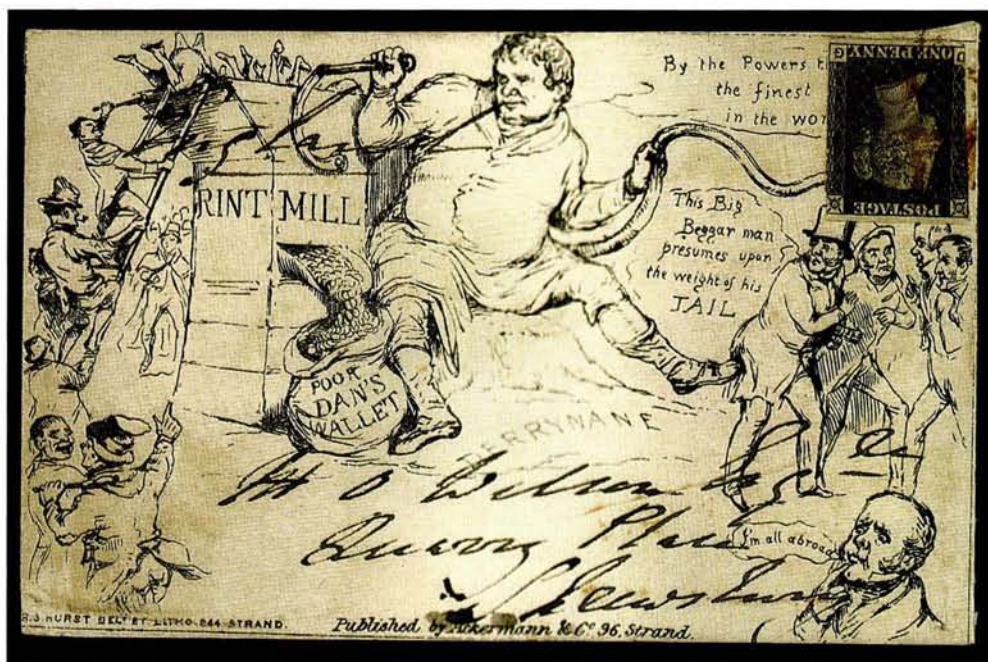 By the Powers t
the finest
in the wor
ONE PENNY
POSTAGE
RINT MILL
This Big
Beggar man
presumes upon
the weight of his
TAIL
POOR
DAN'S
WALLET
DERRYNANE
H O
Quarry Place
I'm all abroad
Shrewsbury
R.J. HURST DELT ET LITHO. 244 STRAND.
Published by Ackermann & Co 96, Strand.